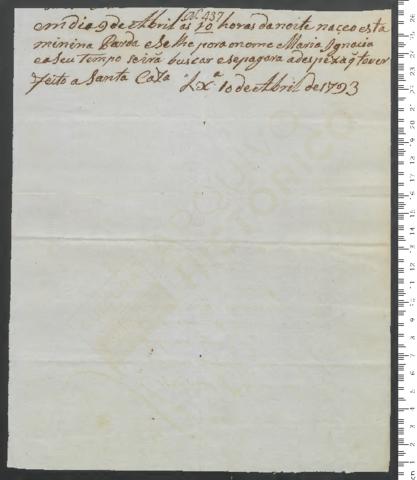 N.º 437
em dia 9 de Abril as 10 horas da noite naçeo esta
minina Parda e se lhe pora o nome Maria Ignacia
e a seu tempo se irá buscar e se pagara a despeza q̃ tever
feito a Santa Caza Lxª 10 de Abril de 1793
ARQUIVO
HISTÓRICO